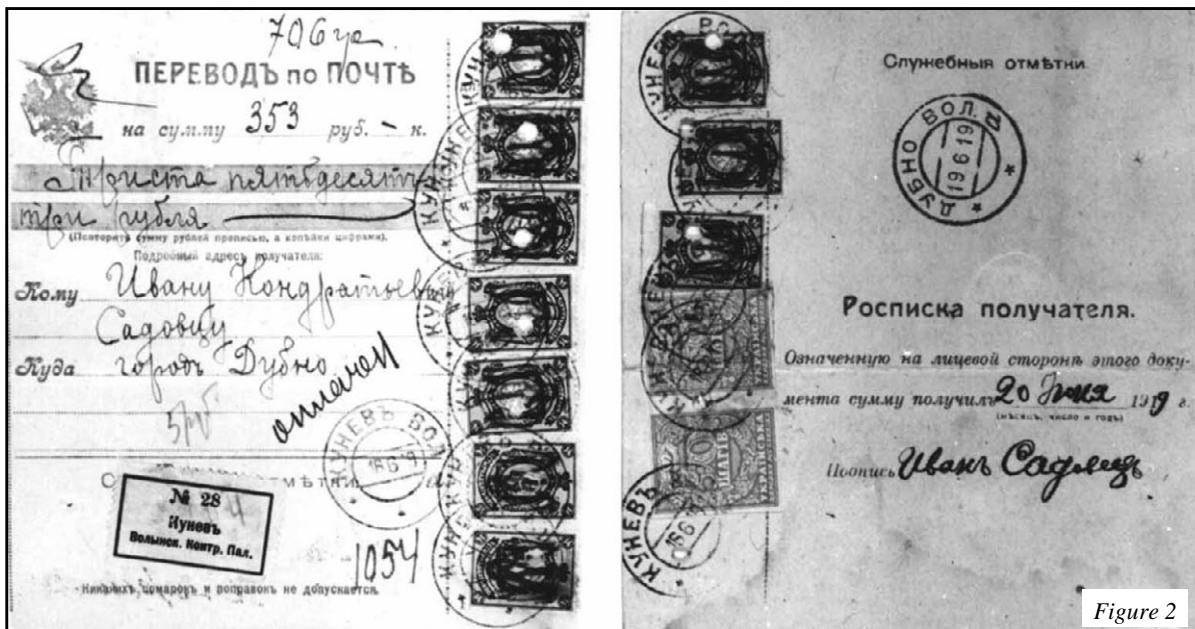 706 гр.
ПЕРЕВОДЪ по ПОЧТѢ
на сумму 353 руб. – к.
Триста пятьдесятъ
три рубля
(Повторить сумму рублей прописью, а копѣйки цифрами).
Подробный адресъ получателя:
Кому Ивану Кондратьев
Садовцу
Куда городъ Дубно
оплачен
КУНЕВЪ ВОЛ.
16 6 19
№ 28
Куневъ
Волынск. Контр. Пал.
1054
Никакихъ помарокъ и поправокъ не допускается.
КУНЕВЪ
КУНЕВЪ
16 6 19
Служебныя отмѣтки.
ДУБНО ВОЛ.
19 6 19
Росписка получателя.
Означенную на лицевой сторонѣ этого доку-
мента сумму получилъ 20 Июня 1919 г.
(мѣсяцъ, число и годъ)
Подпись Иванъ Садовецъ
Figure 2